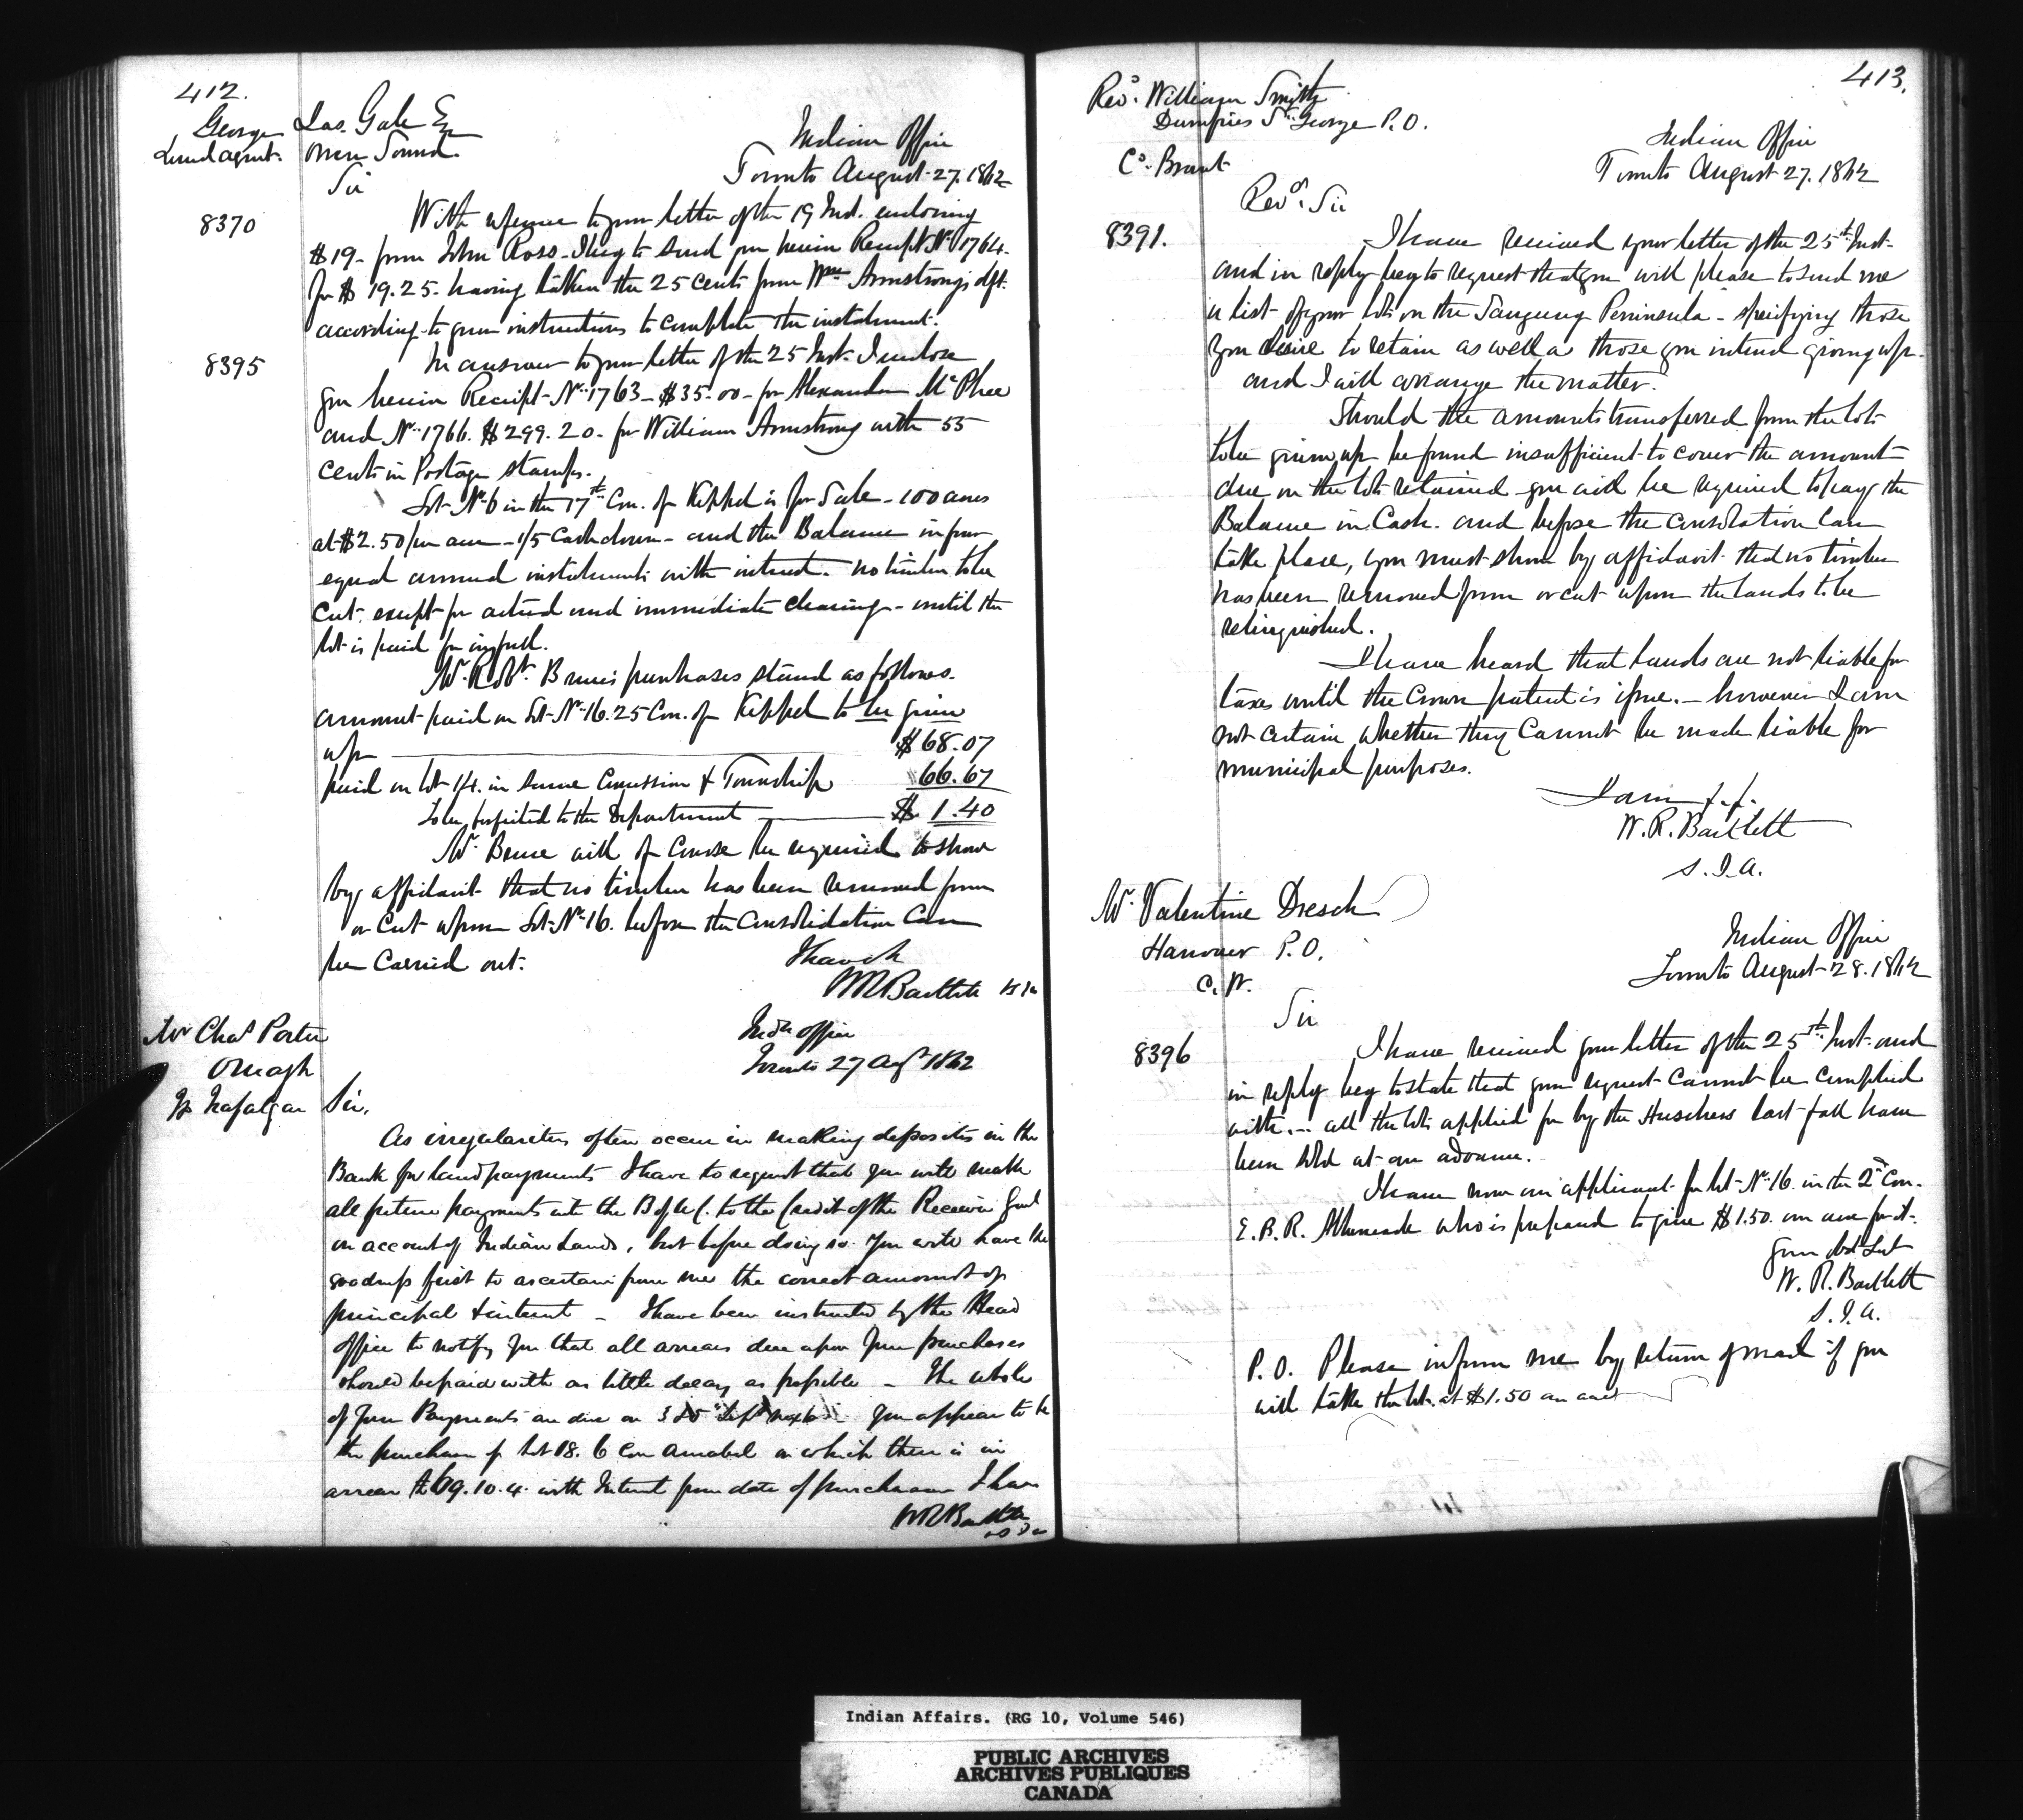 412.
George Jas. Gale Esq
Land agent. Owen Sound.
Indian Office
Toronto August 27. 1862
Sir
8370
With reference to your letter of the 19 Inst. enclosing
$19- from John Ross- I beg to send you herein Receipt No. 1764.
for $19.25- having taken the 25 cents from Wm Armstrong's dpt.
according to your instructions to complete the instalment.
8395
In answer to your letter of the 25 Inst. I enclose
you herein Receipt No. 1763- $35.00- for Alexander McPhee
and No. 1766. $299.20- for William Armstrong with 55
cents in Postage stamps.
Lot No. 6 in the 17th Con. of Keppel is for Sale- 100 acres
at $2.50 per acre- 1/5 Cash down- and the Balance in four
equal annual instalments with interest. no timber to be
cut- except for actual and immediate clearing- until the
lot is paid for in full.
Mr. Robt. Bruce's purchases stand as follows.
amount paid on Lot No. 16. 25 Con. of Keppel to be given
up $68.07
paid on lot 14. in same Concession & Township 66.67
To be forfeited to the Department $ 1.40
Mr. Bruce will of Course be required to show
by affidavit that no timber has been removed from
or cut upon Lot No. 16. before the Consolidation Can
be Carried out.
I have &c
WRBartlett
Mr Chas Porter
Omagh
Trafalgar
Indn office
Toronto 27 Augt 1862
Sir,
As irregularities often occur in making deposits in the
Bank for land payments I have to request that you will make
all future payments into the B of U C. to the Credit of the Receiver Genl
on account of Indian Lands, but before doing so you will have the
goodness first to ascertain from me the correct amount of
principal & interest - I have been instructed by the Head
office to notify you that all arrears due upon your purchases
should be paid with as little delay as possible - The whole
of your Payments are due on Sept next You appear to be
the purchaser of Lot 18. 6 Con Amabel on which there is in
arrear 69.10.4. with Interest from date of purchase I have
WRBartlett
413.
Revd. William Smith
Dumfries St. George P.O.
Co. Brant
Indian Office
Toronto August 27. 1862
Revd. Sir
8391.
I have received your letter of the 25th Inst-
and in reply beg to request that you will please to send me
a list of your lots on the Saugeeng Peninsula- specifying those
you desire to retain as well as those you intend giving up-
and I will arrange the matter.
Should the amounts transferred from the lots
to be given up be found insufficient to cover the amount
due on the lots retained you will be required to pay the
Balance in Cash. and before the consolation Can
take place, you must show by affidavit that no timber
has been removed from or cut upon the lands to be
relinquished.
I have heard that lands are not liable for
taxes until the Crown patent is issue.- however I am
not certain whether they Cannot be made liable for
municipal purposes.
I am
W. R. Bartlett
S. I. A.
Mr. Valentine Dresch
Hanover P.O.
C. W.
Indian Office
Toronto August 28. 1862
Sir
8396
I have received your letter of the 25th Inst. and
in reply beg to state that your request Cannot be complied
with.- all the lots applied for by the last fall have
been sold at an advance.
I have now an applicant for lot No. 16. in the 2d Con.
E. B. R. who is prepared to give $1.50. an acre for it.
Your Obt. Svt
W. R. Bartlett
S. I. A.
P. O. Please inform me by return of mail if you
will take the lot. at $1.50 an acre
Indian Affairs. (RG 10, Volume 546)
PUBLIC ARCHIVES
ARCHIVES PUBLIQUES
CANADA